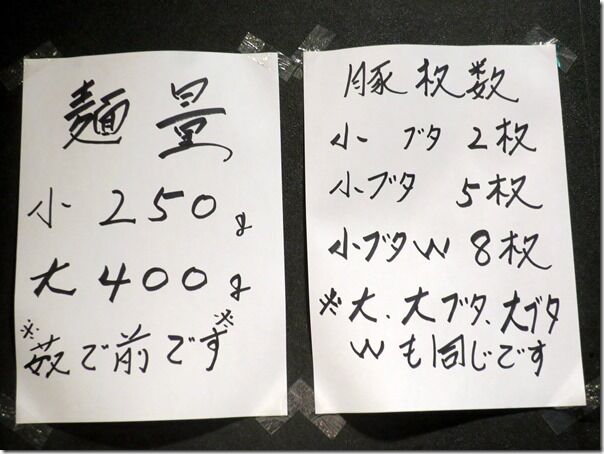 麺量
小 250g
大 400g
※茹で前です※
豚枚数
小ー ブタ 2枚
小ブタ 5枚
小ブタW 8枚
※大、大ブタ、大ブタ
Wも同じです